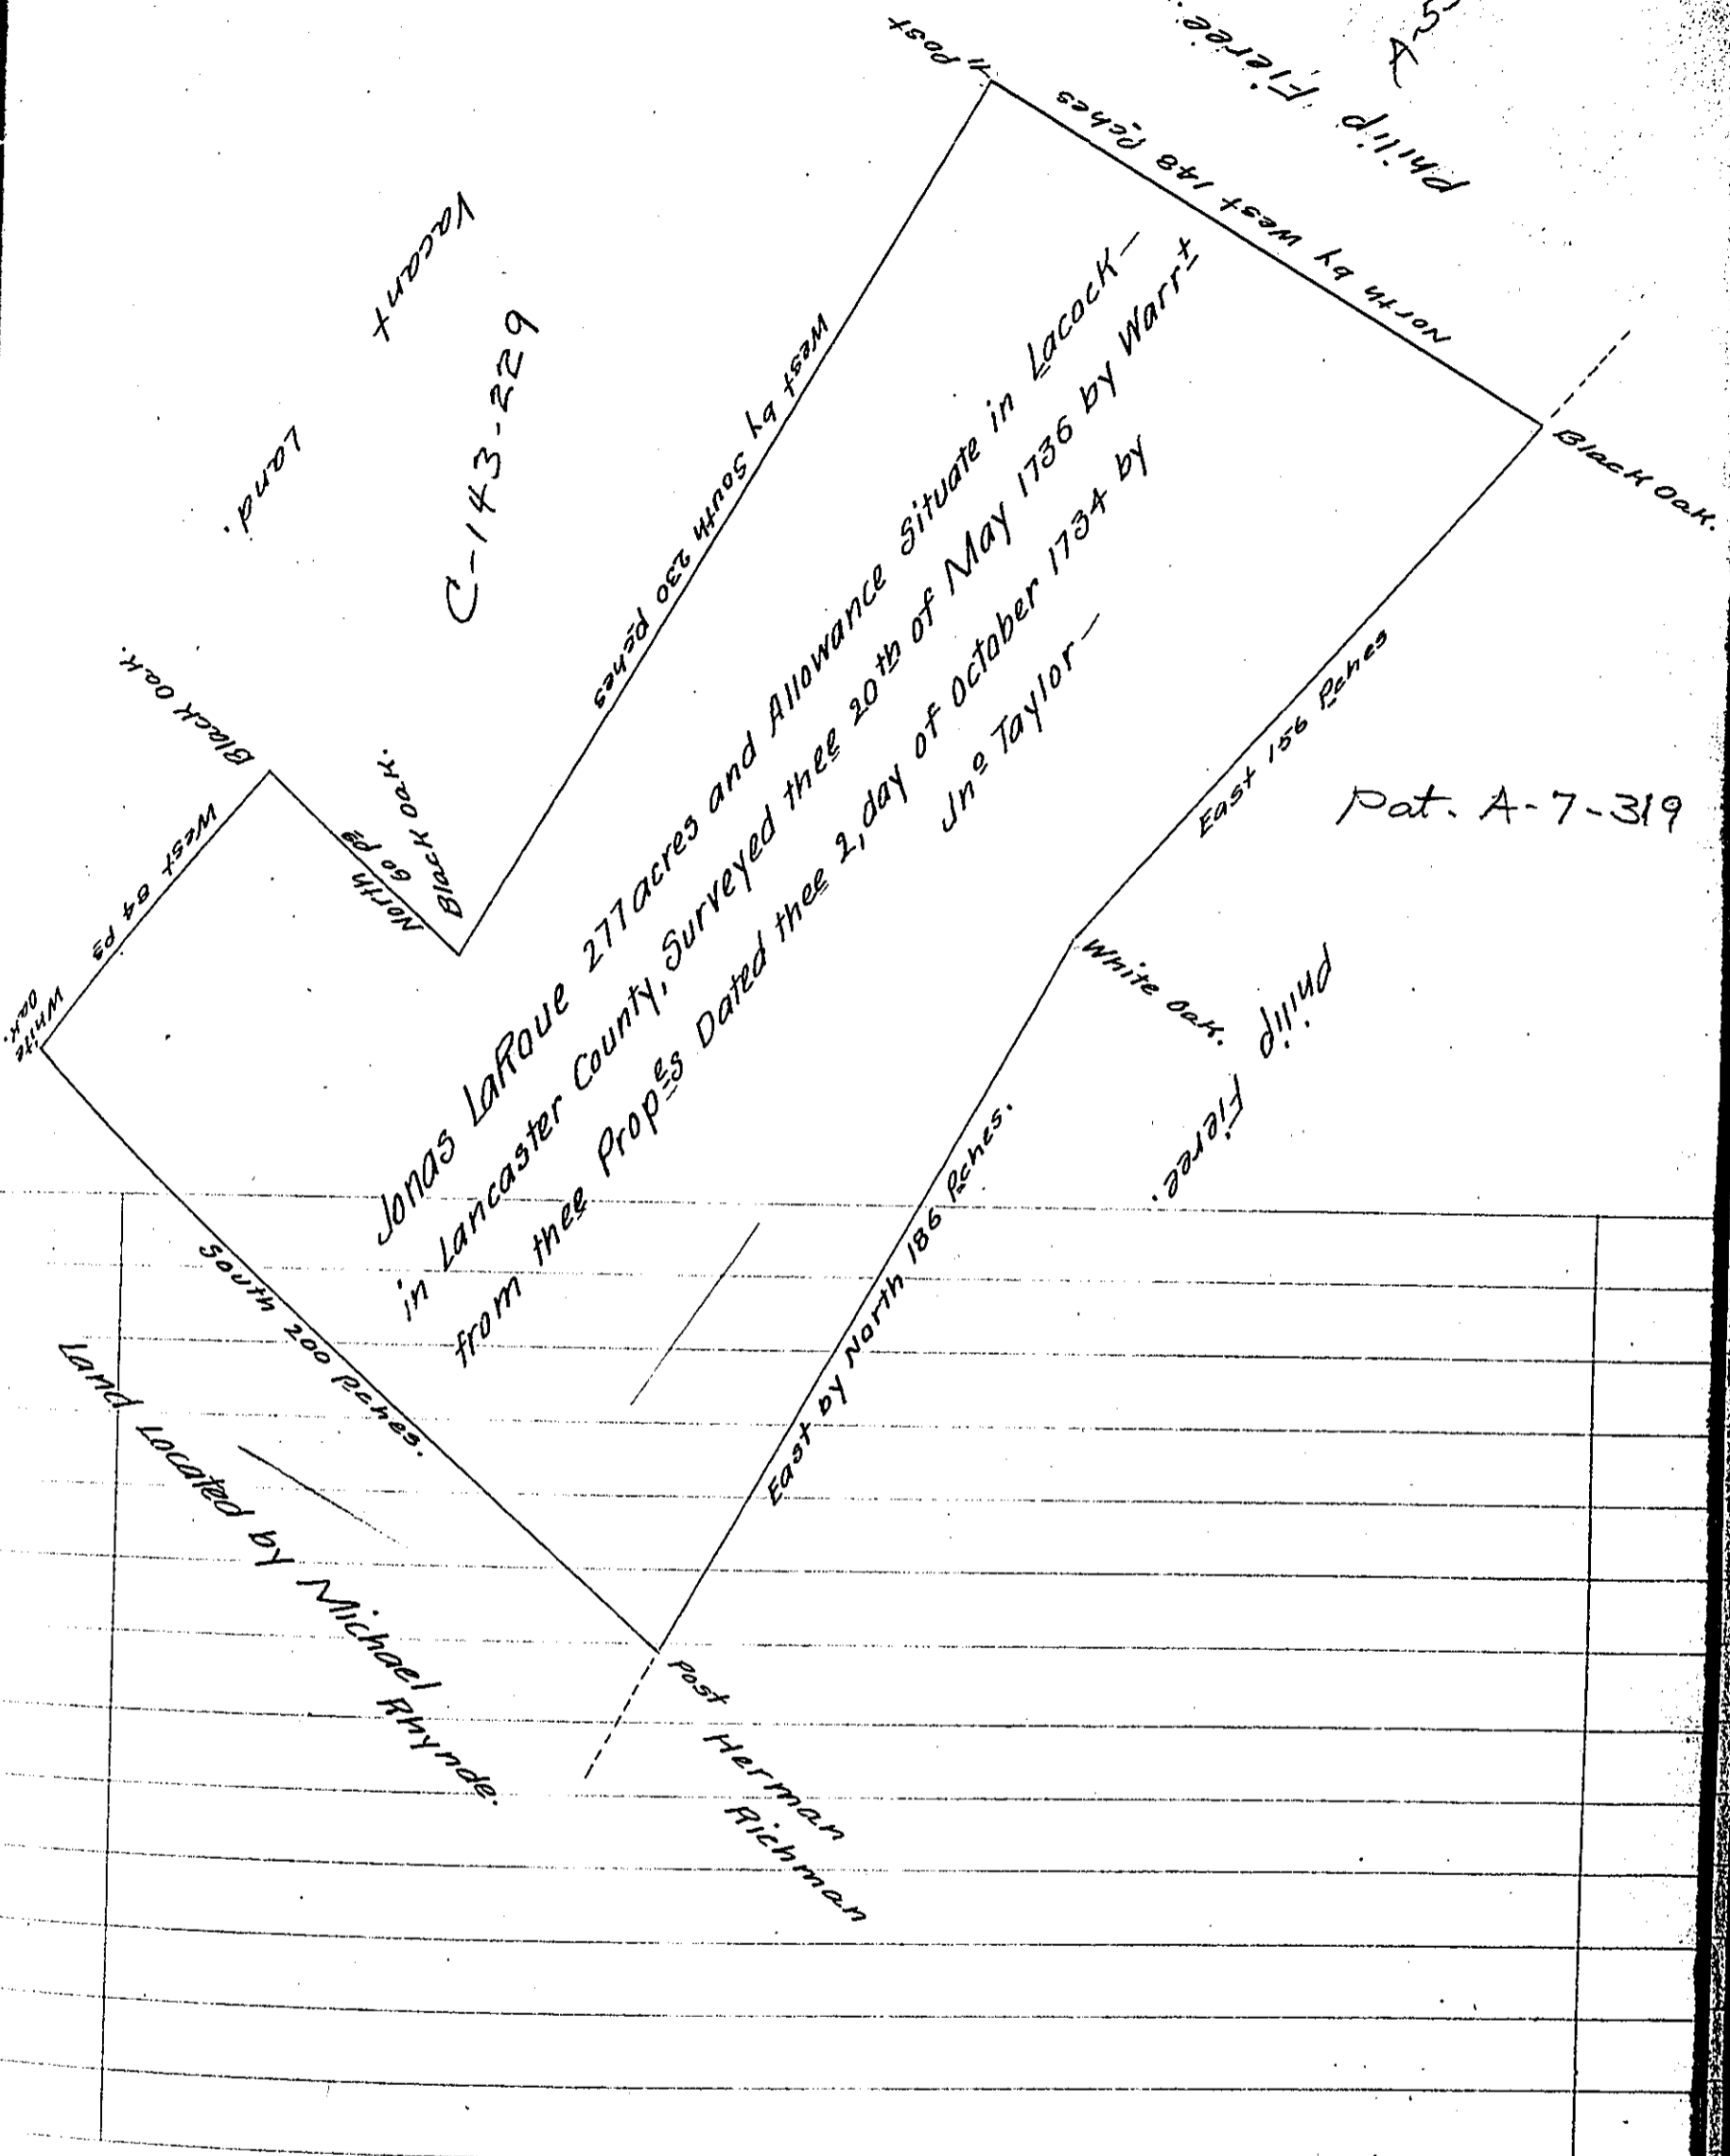 Philip Fieree.
a Post
North by West 148 Pches
Vacant
Land.
C-143-229
West by South 230 pches
Black Oak.
Black Oak.
Black Oak.
North
60 Ps
West 84 Ps
White
Oak.
Jonas LaRoue 277 acres and Allowance Situate in Lacock—
in Lancaster County, Surveyed thee 20th of May 1736 by Warrt
from thee Propes Dated thee 2, day of October 1734 by
Jno Taylor—
East 156 Pches
Pat. A-7-319
White Oak.
Philip
Fieree.
East by North 186 Pches.
South 200 Pches.
Land Located by Michael
Rhynde.
Post
Herman
Richman